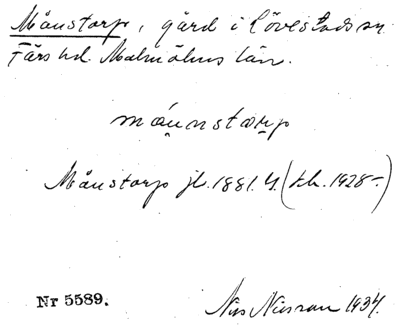 Månstorp, gård i Lövestads sn.
Färs hd. Malmöhus län.
måunstarp
Månstorp jb. 1881. 4. (kb. 1928-)
Nr 5589.
Nils Nilsson 1934.